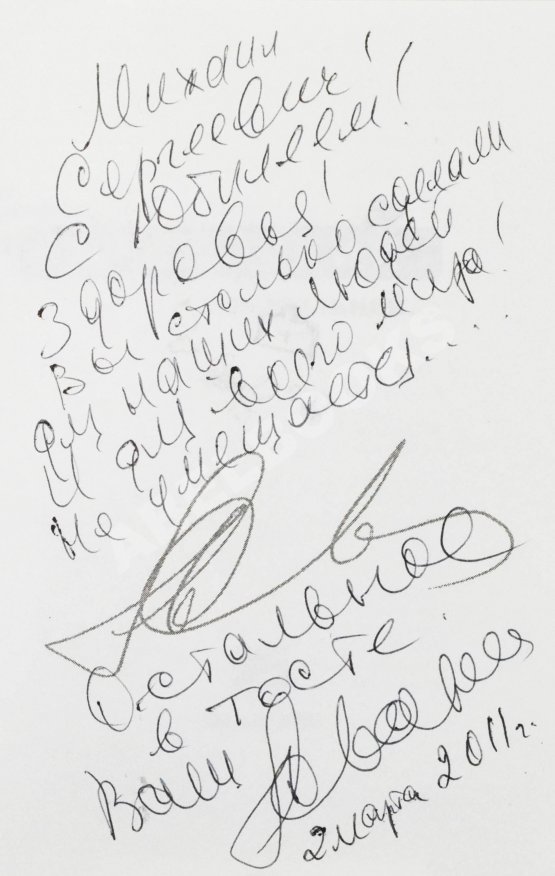 Михаил
Сергеевич!
С Юбилеем!
Здоровья!
Вы столько сделали
для наших людей
и для всего мира!
Не умещается....
Остальное
в тосте.
Ваш
2 марта 2011 г.